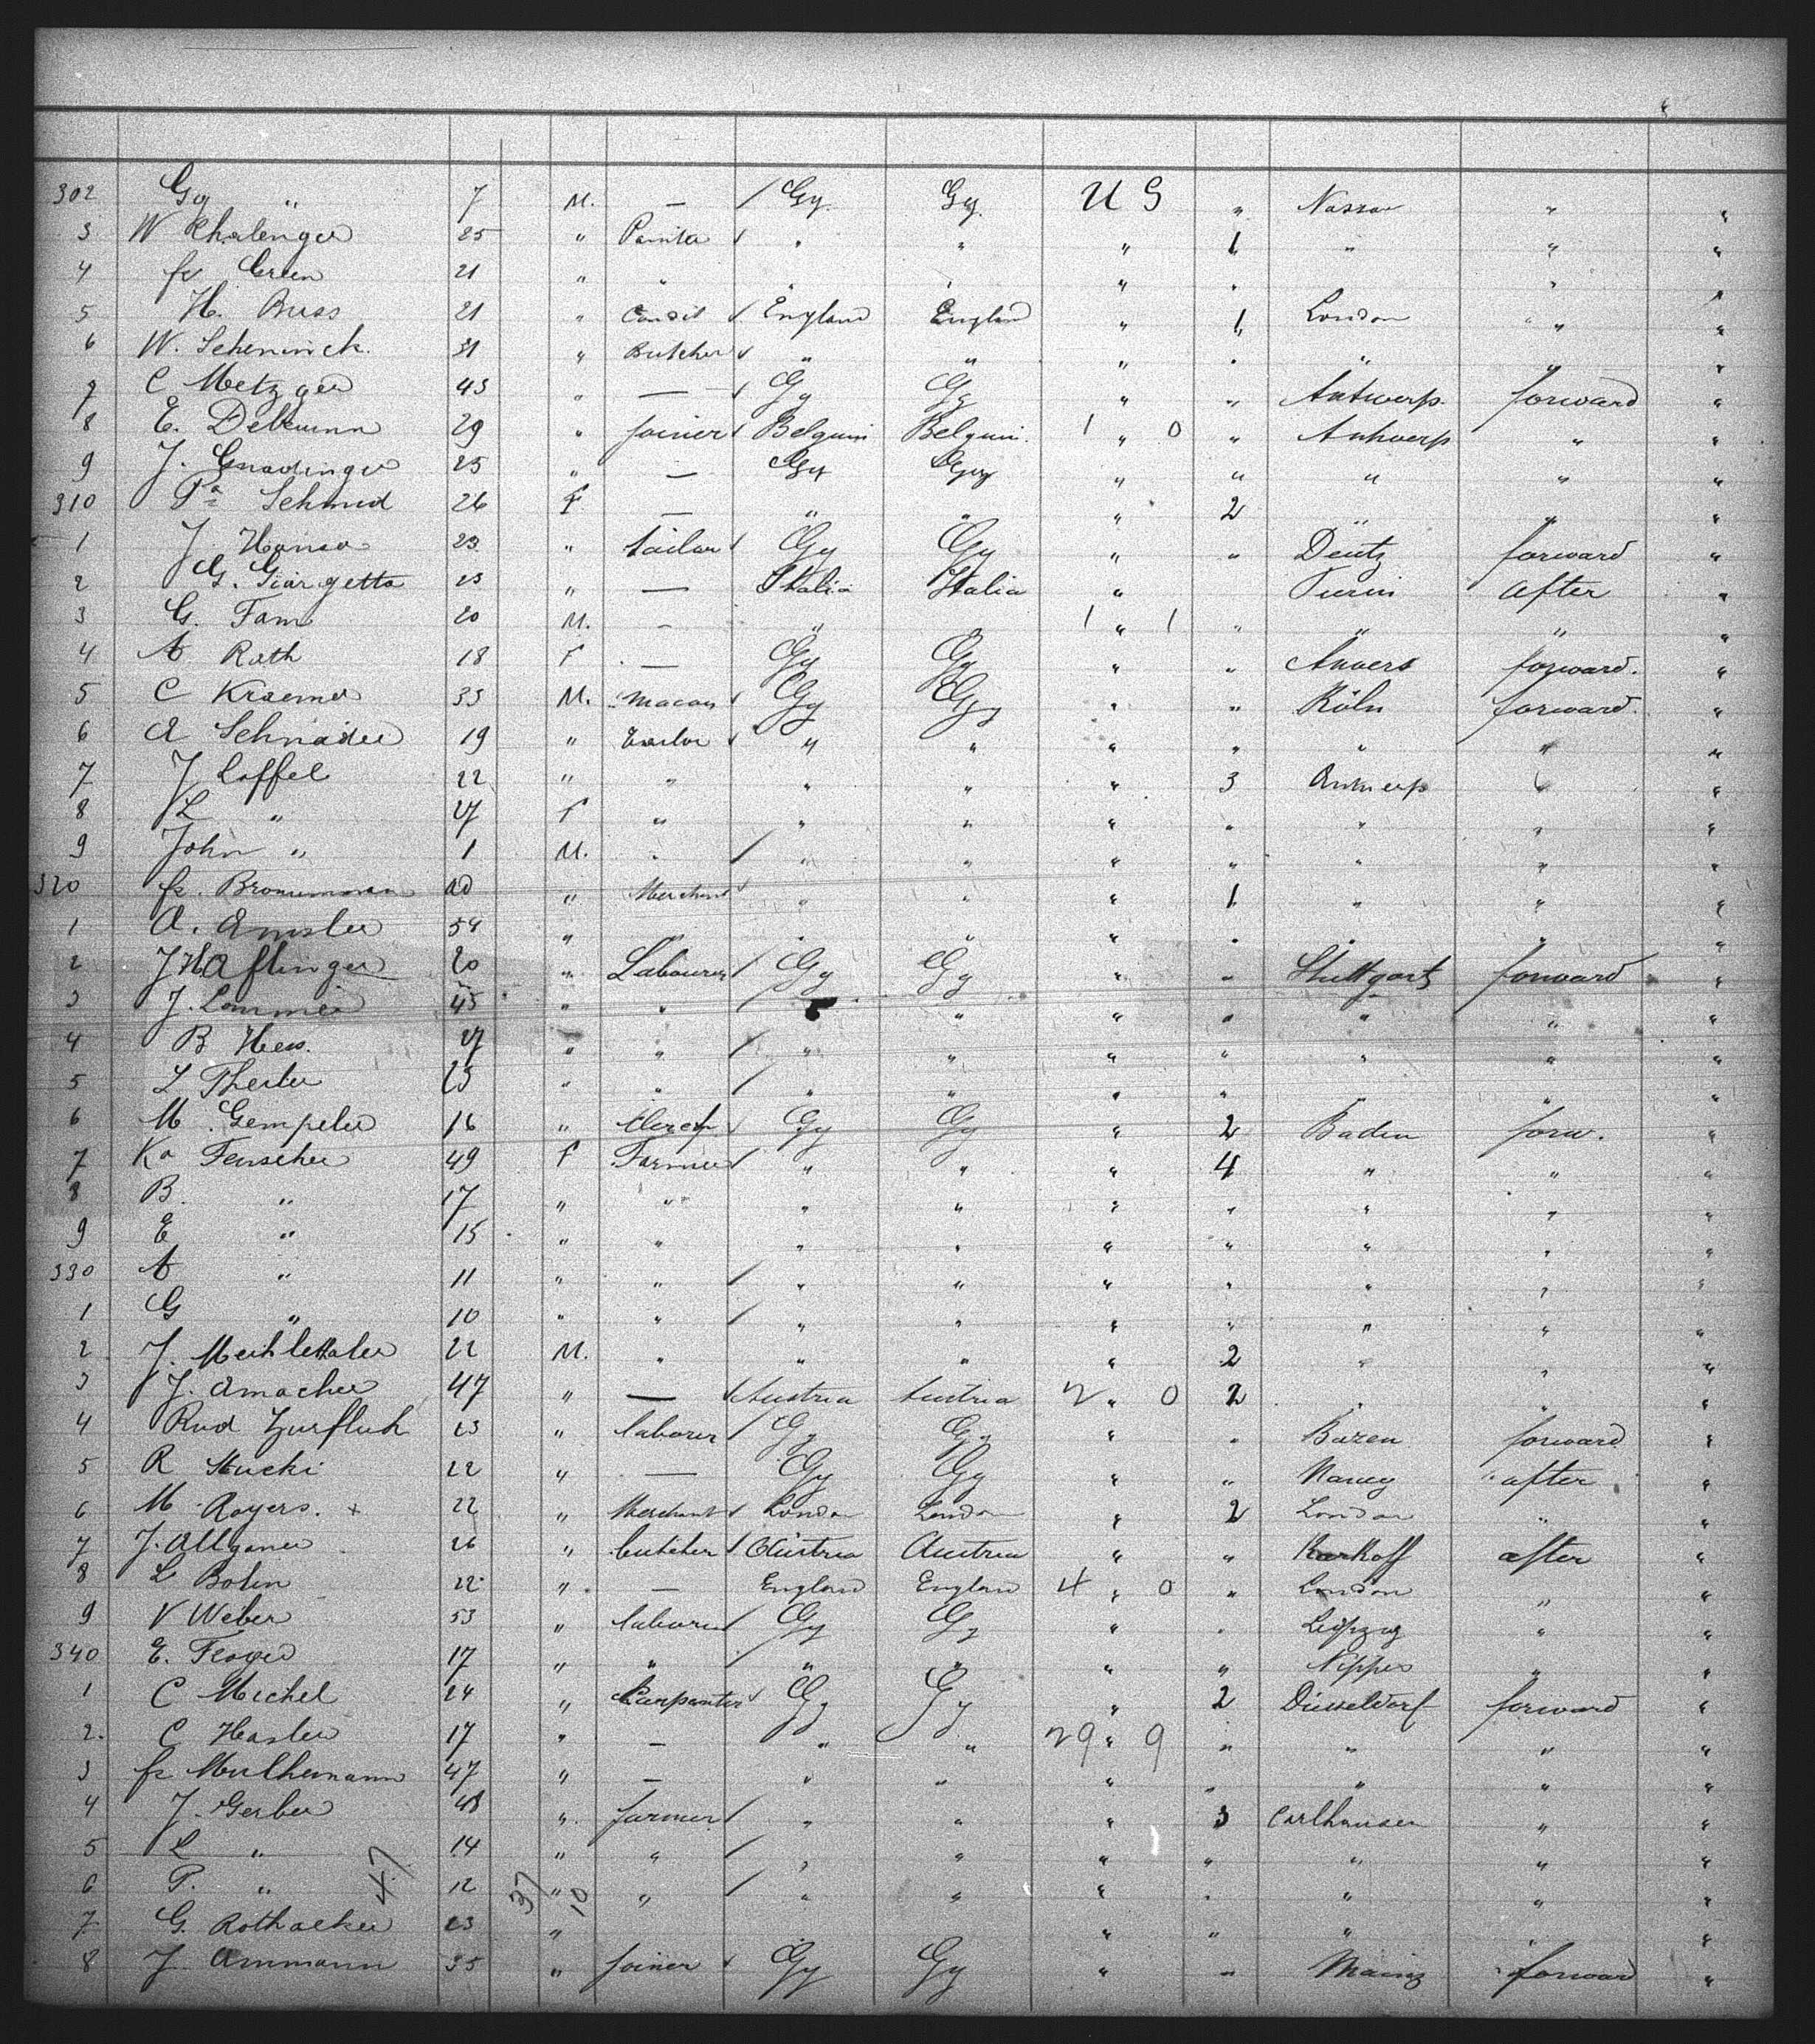 302 Gg " 7 M. — / Gy. Gy. U S " Nassau " "
3 W 25 " " " " 1 " " "
4 fr Green 21 " " " " " " " "
5 H. Buss 21 " England England " 1 London " "
6 W. Scheninck. 31 " Butcher " " " " " " "
7 C Metzger 43 " — Gy Gy " " Antwerp. forward "
8 E. 29 " joiner Belguim Belguim. 1 " 0 " Antwerp " "
9 J. Gnadinger 25 " — Gy Gy " " " " "
310 Pa Schmid 26 F — " " " 2 " " "
1 J. 23 " tailor Gy Gy " " Deutz forward "
2 G. Giargetta 23 " — Italia Italia " Turin after "
3 G. Fam 20 M. - " " 1 " 1 " " " "
4 A Rath 18 F — Gy Gy " " Anvers forward. "
5 C Kraemer 33 M. macon Gy Gy " " Köln forward. "
6 A Schnaider 19 " " " " " " " "
7 J Loffel 22 " " " " " 3 Antwerp " "
8 L " 27 F " " " " " " " "
9 John " 1 M. " / " " " " " " "
320 fr. 20 " Merchant " " " 1 " " "
1 A. Amsler 54 " " " " " " " " "
2 J Haflinger 20 " Labourer / Gy Gy " " Stuttgart forward "
3 J. 45 " " / " " " " " "
4 B Hess. 27 " " / " " " " " " "
5 L 25 " " / " " " " " " "
6 M. Gempeler 16 " Gy Gy " 2 Baden forw. "
7 Ka Fenscher 49 F Farmer / " " " 4 " " "
8 B. " 17 " " " " " " " " "
9 E " 15 " " " " " " " " "
330 A " 11 " " / " " " " " " "
1 G " 10 " " / " " " " " " "
2 J. 22 M. " " " " 2 " " "
3 J. Amacher 47 " — Austria Austria 2 " 0 2 " " "
4 Rud Zurfluh 23 " laborer / Gy Gy " " Buren forward "
5 R Stucki 22 " — Gy Gy " " Nancy after "
6 M Royers. + 22 " Merchant London London " 2 London " "
7 J. Allganer 26 " butcher Austria Austria " " after "
8 L Bohn 22 " — England England 4 " 0 " London " "
9 V Weber 53 " laborer / Gy Gy " " Leipzig " "
340 E. 17 " " / " " " " Nippes " "
1 C Michel 24 " Carpenter Gy Gy " 2 Düsseldorf forward "
2. C Hasler 17 " — " " 29 " 9 " " " "
3 fr Mulhemann 47 " — " " " " " " "
4 J. Gerber 48 " farmer / " " " 3 Carlhausen " "
5 L " 14 " " / " " " " " " "
6 P. " 47 12 37 " 10 " / " " " " " " "
7 G. Rothacker 23 " " " " " "
8 J Ammann 35 " joiner Gy Gy " " Mainz forward "